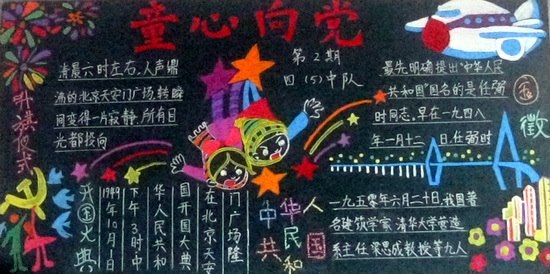 童心向党
第2期
四(5)中队
升旗仪式
清晨六时左右,人声鼎
沸的北京天安门广场,转瞬
间变得一片寂静,所有目
光都投向
开国大典
1949年10月1日
下午3时中
华人民共和
国开国大典
在北京天安
门广场隆
最先明确提出"中华人民
共和国"国名的是任弼
时同志,早在一九四八
年一月十二日,任弼时
国徽
中华人
民共和国
一九五零年六月二十日,我国著
名建筑学家,清华大学营造
系主任梁思成教授等九人